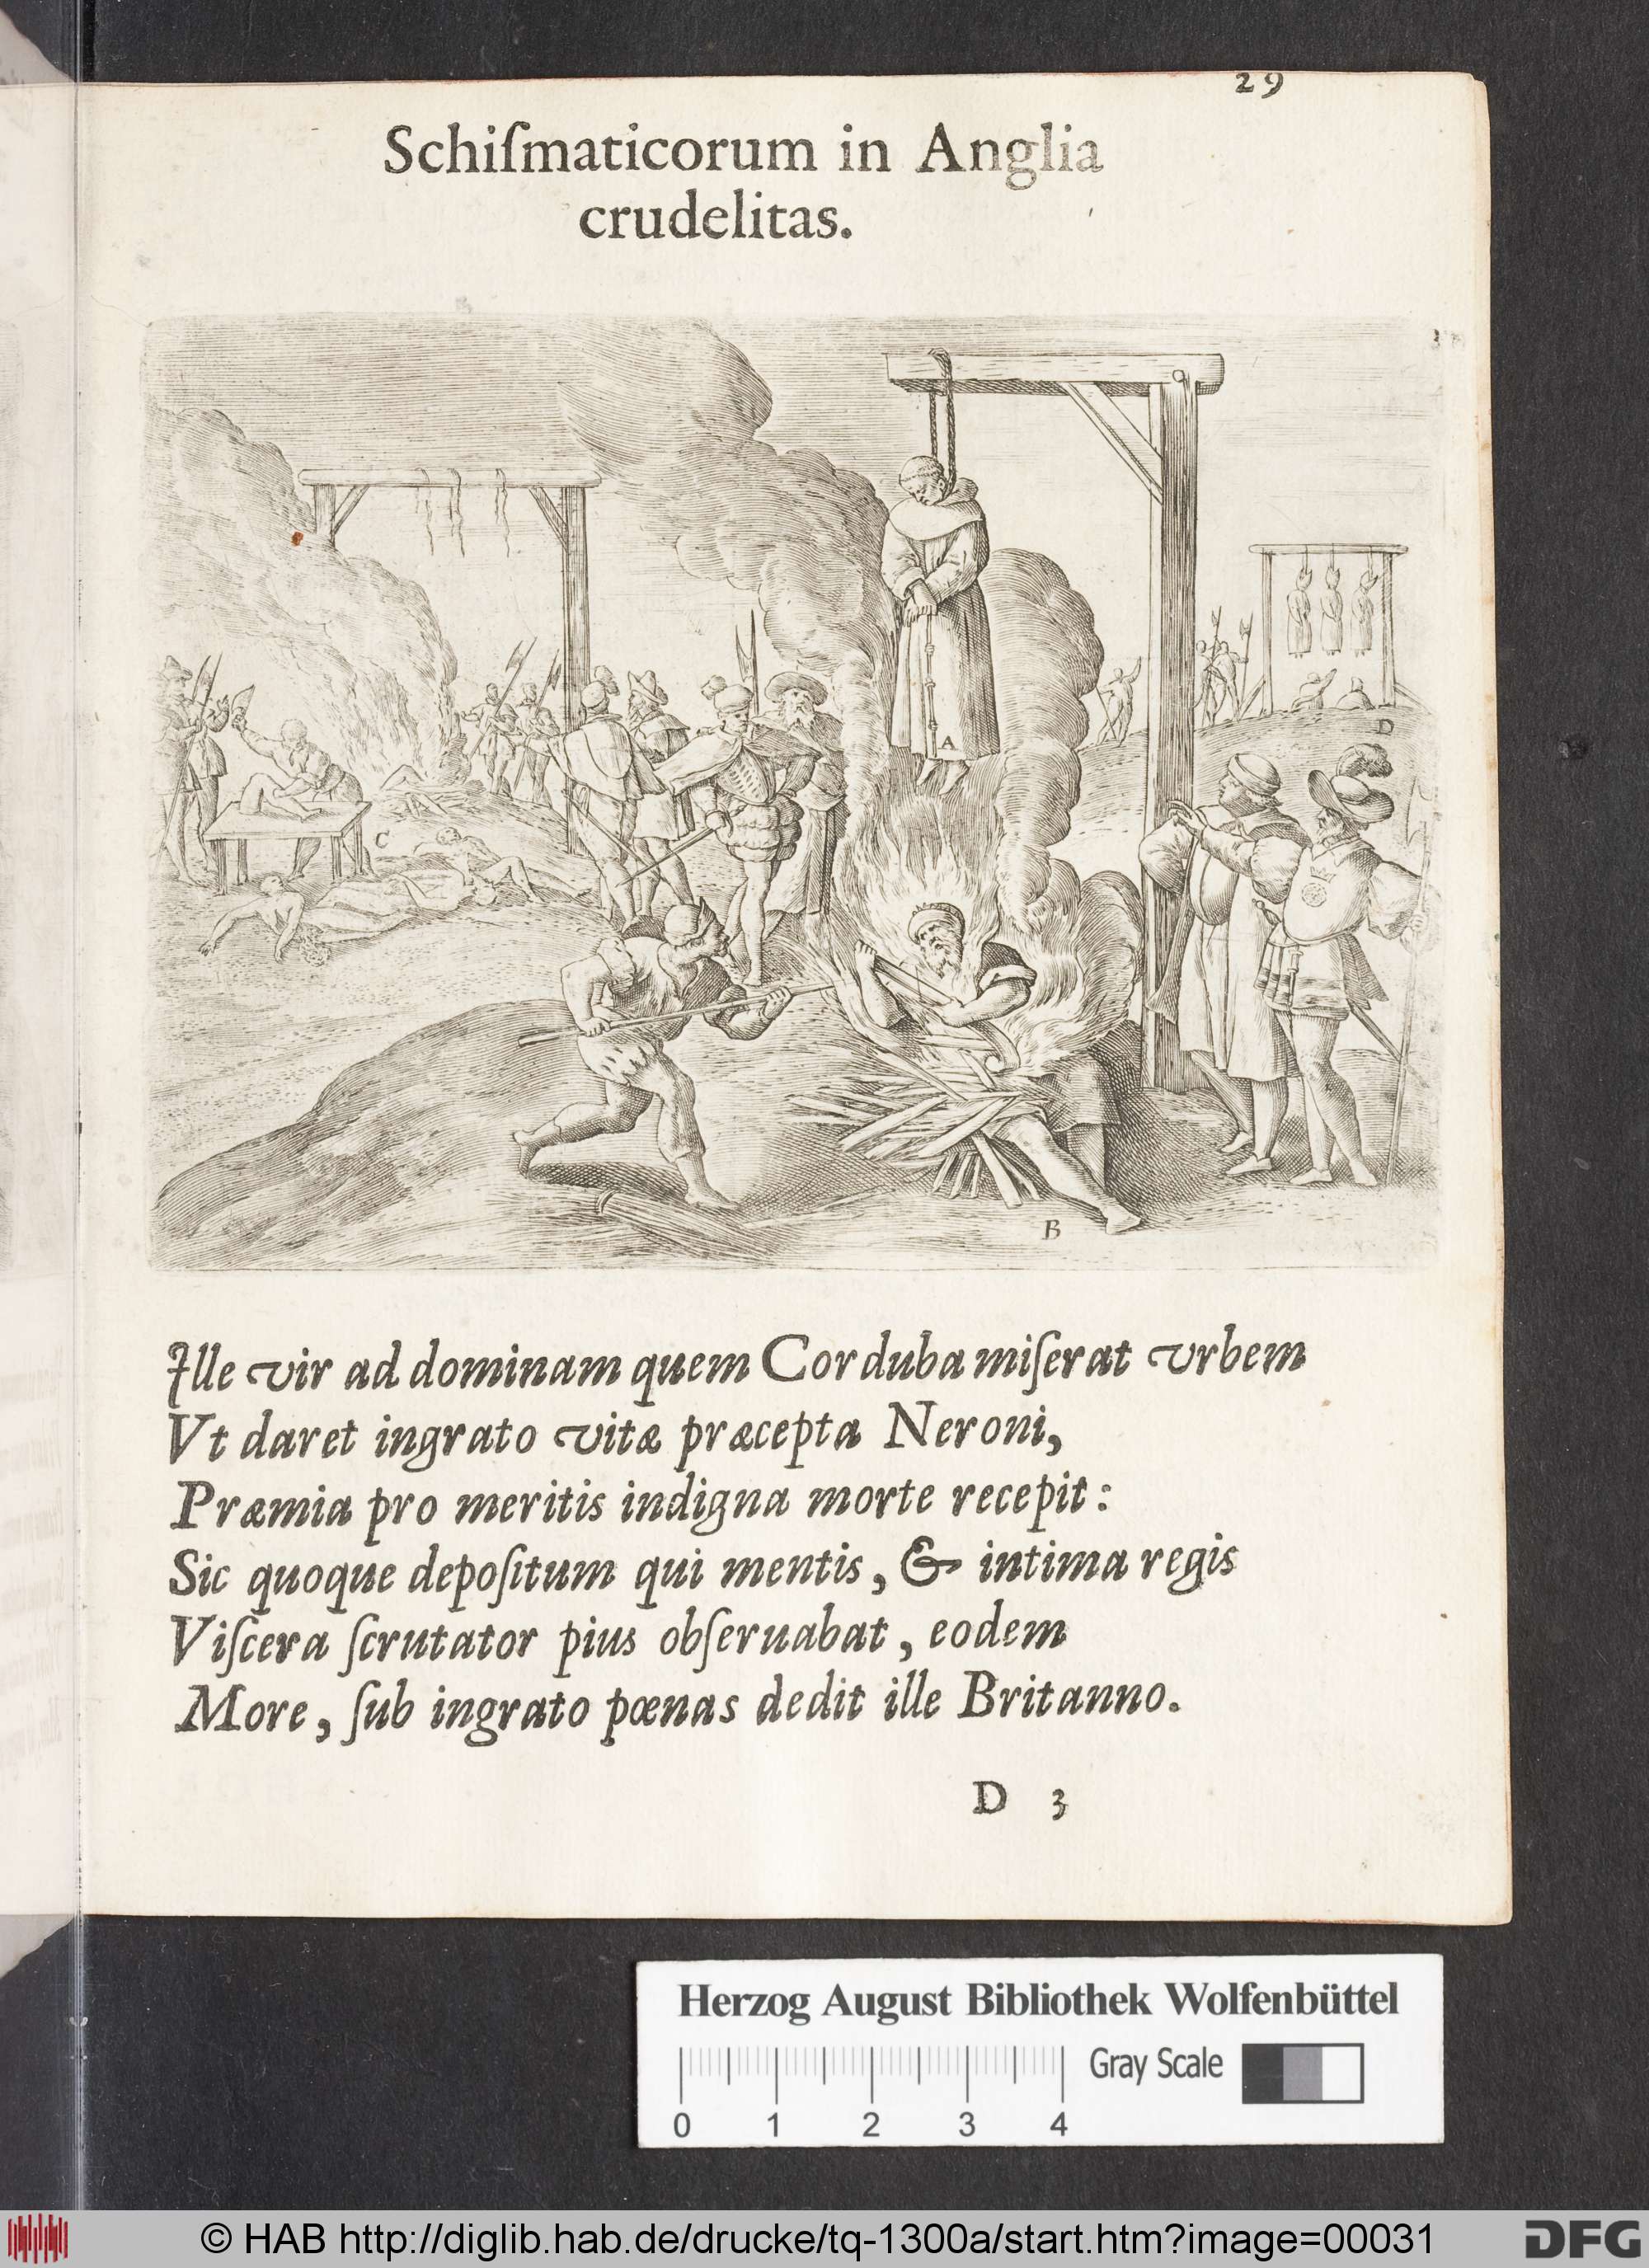 29
Schiſmaticorum in Anglia
crudelitas.
A
D
C
B
Ille vir ad dominam quem Corduba miſerat vrbem
Vt daret ingrato vitæ præcepta Neroni,
Præmia pro meritis indigna morte recepit:
Sic quoque depoſitum qui mentis, & intima regis
Viſcera ſcrutator pius obſeruabat, eodem
More, ſub ingrato pœnas dedit ille Britanno.
D 3
Herzog August Bibliothek Wolfenbüttel
Gray Scale
0 1 2 3 4
© HAB http://diglib.hab.de/drucke/tq-1300a/start.htm?image=00031
DFG